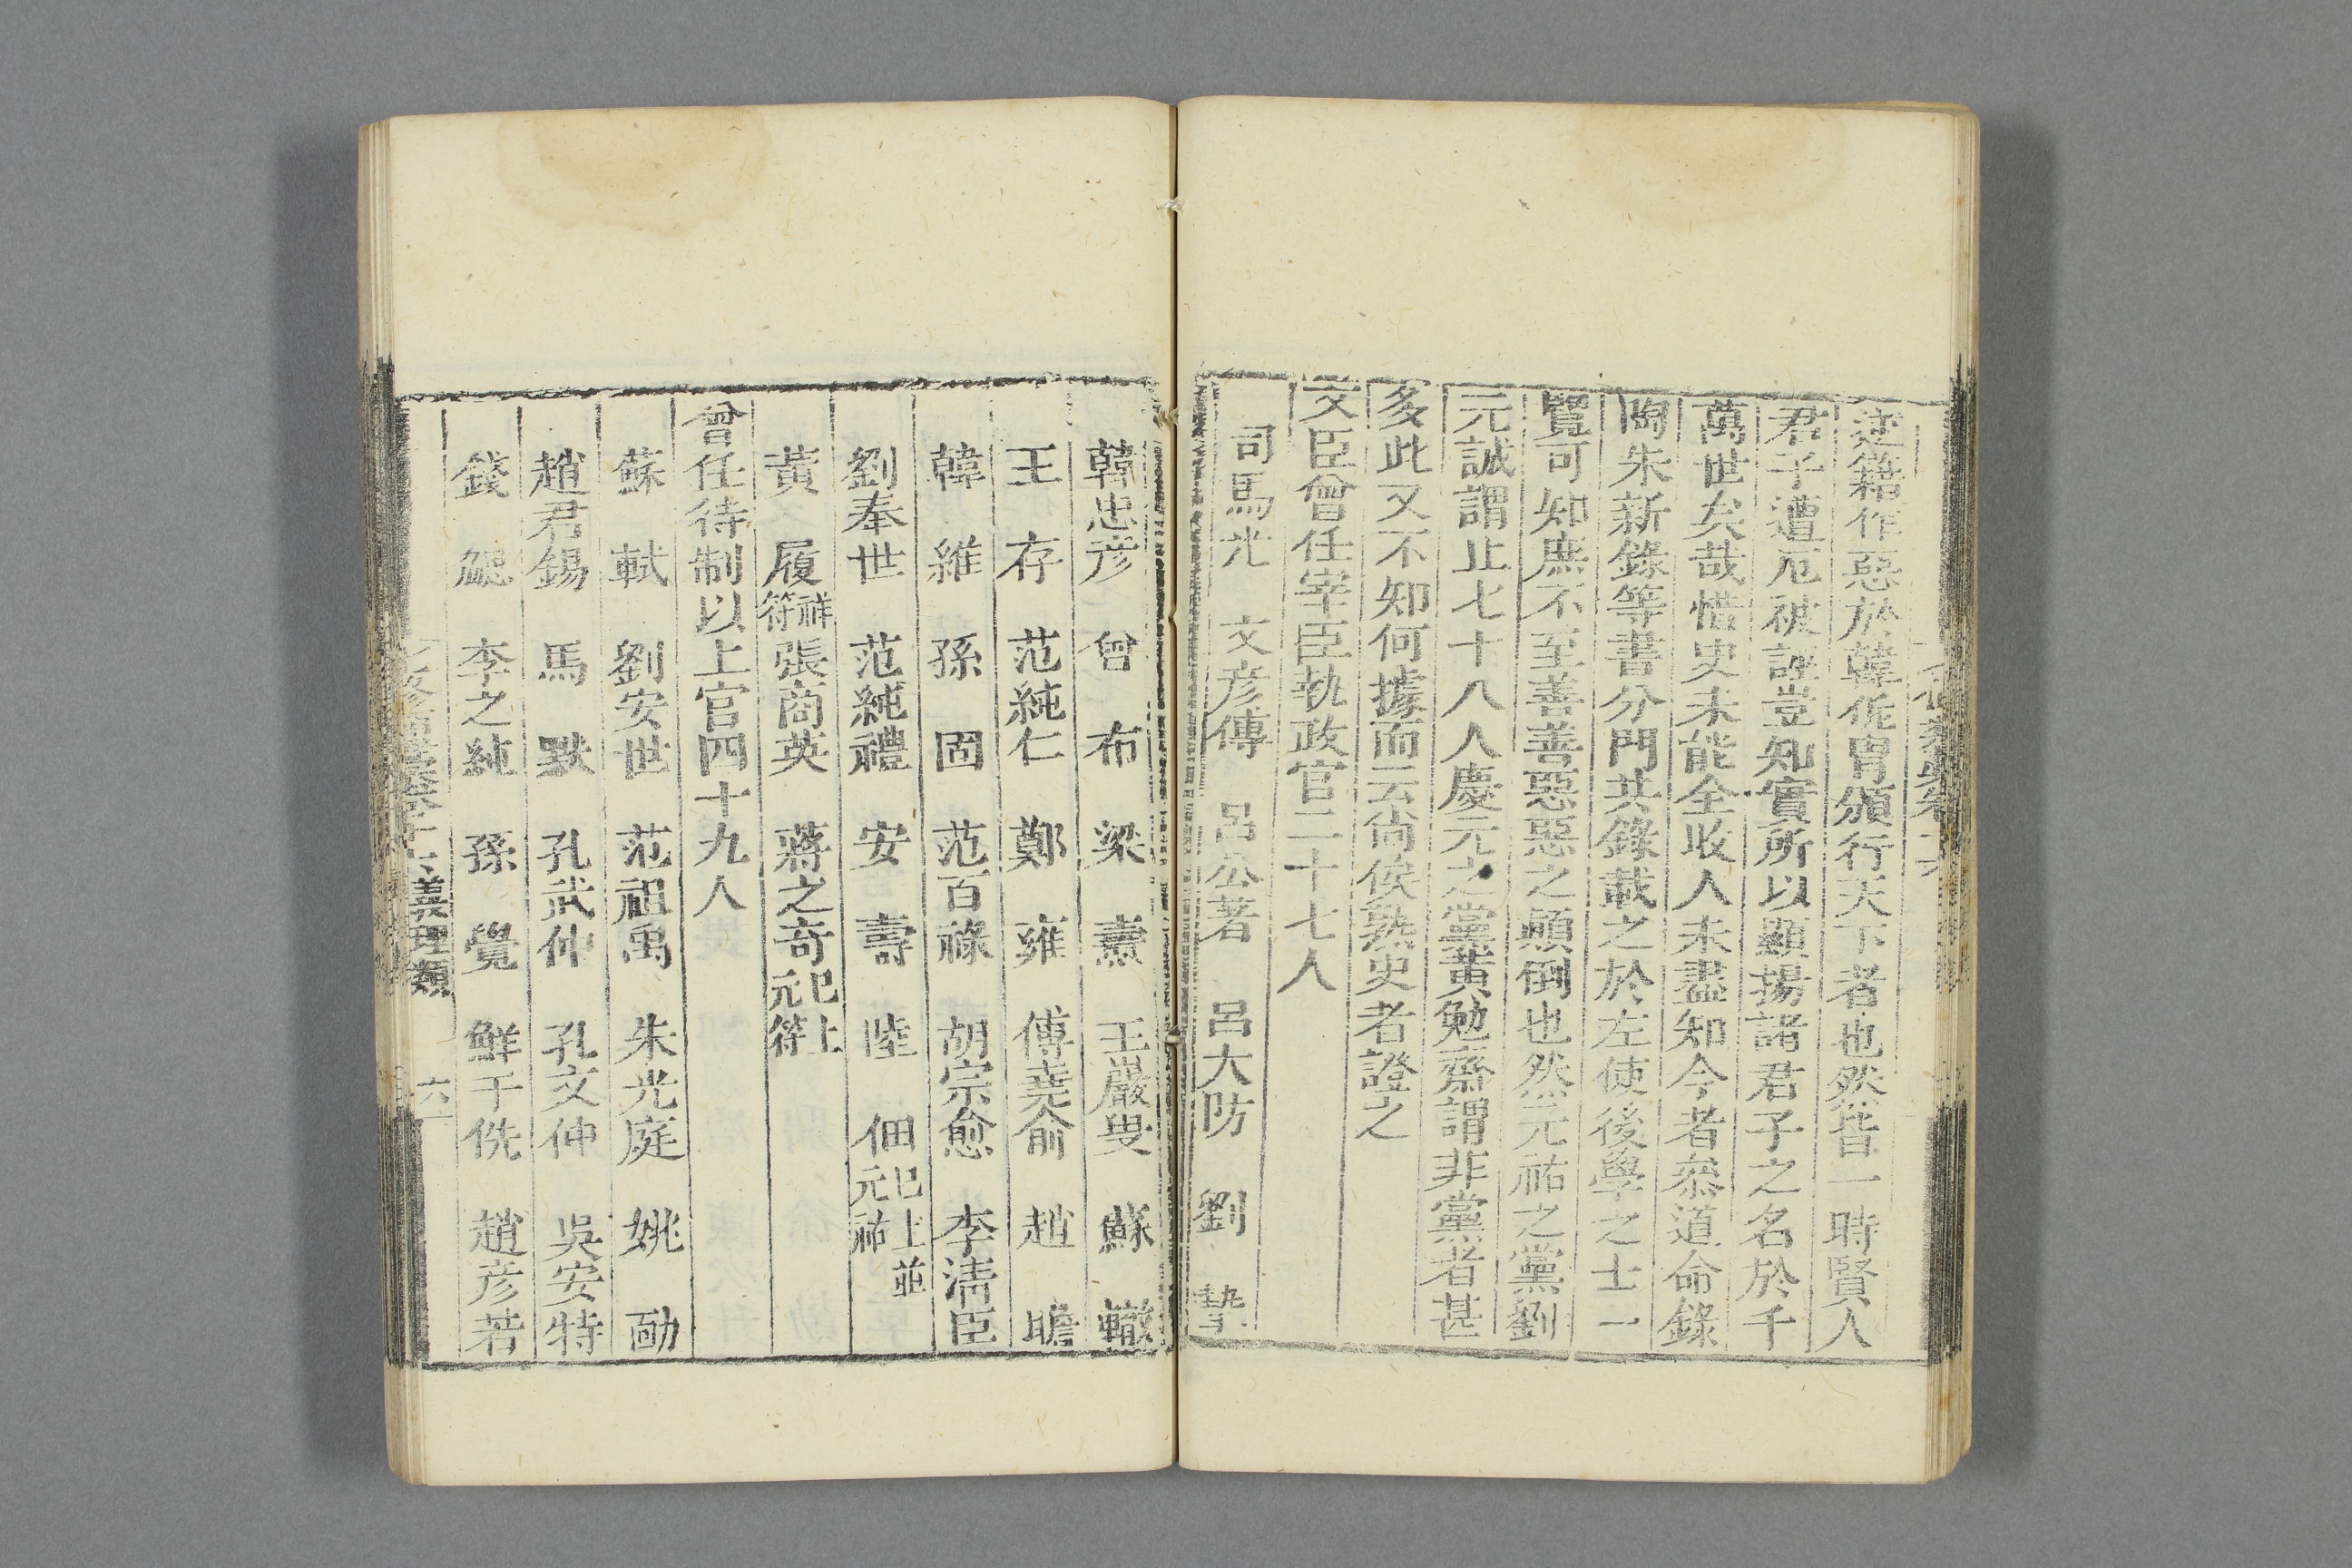 逆籍作惡於韓侂胄頒行天下者也然皆一時賢人
君子遭厄被誣豈知實所以顯揚諸君子之名於千
萬世矣哉惜史未能全收人未盡知今者叅道命錄
陶朱新錄等書分門共錄載之於左使後學之士一
覽可知庶不至善善惡惡之顛倒也然元祐之黨劉
元誠謂止七十八人慶元之黨黃勉齋謂非黨者甚
多此又不知何據而云尚俟熟史者證之
文臣曾任宰臣執政官二十七人
司馬光 文彦傳 呂公著 呂大防 劉 摯
韓忠彦 曾 布 梁 燾 王巖叟 蘇 轍
王 存 范純仁 鄭 雍 傅堯俞 趙 瞻
韓 維 孫 固 范百祿 胡宗愈 李淸臣
劉奉世 范純禮 安 燾 陸 佃 已上並元祐
黃 履 祥符 張商英 蔣之奇 已上元符
曾任待制以上官四十九人
蘇 軾 劉安世 范祖禹 朱光庭 姚 勔
趙君錫 馬 默 孔武仲 孔文仲 吳安特
錢 勰 李之純 孫 覺 鮮于侁 趙彦若
義理類 六